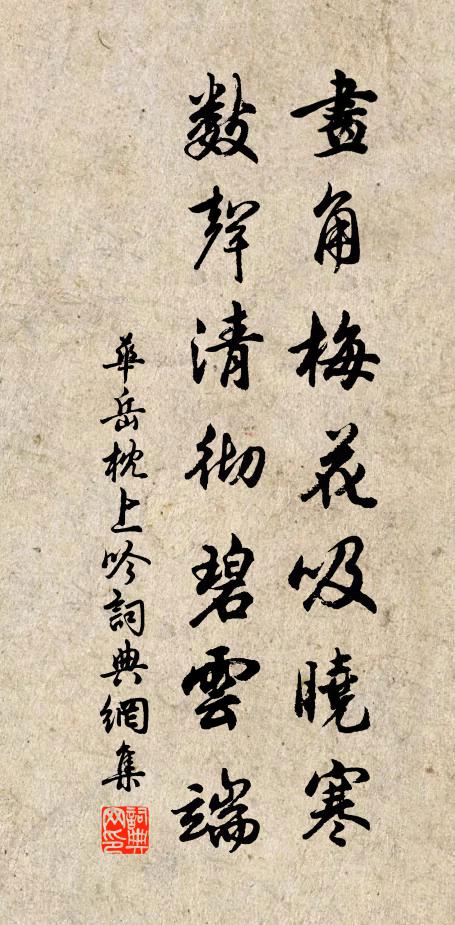 畫角梅花吸曉寒
數聲清彻碧雲端
華岳枕上吟詞典網集
詞典网印